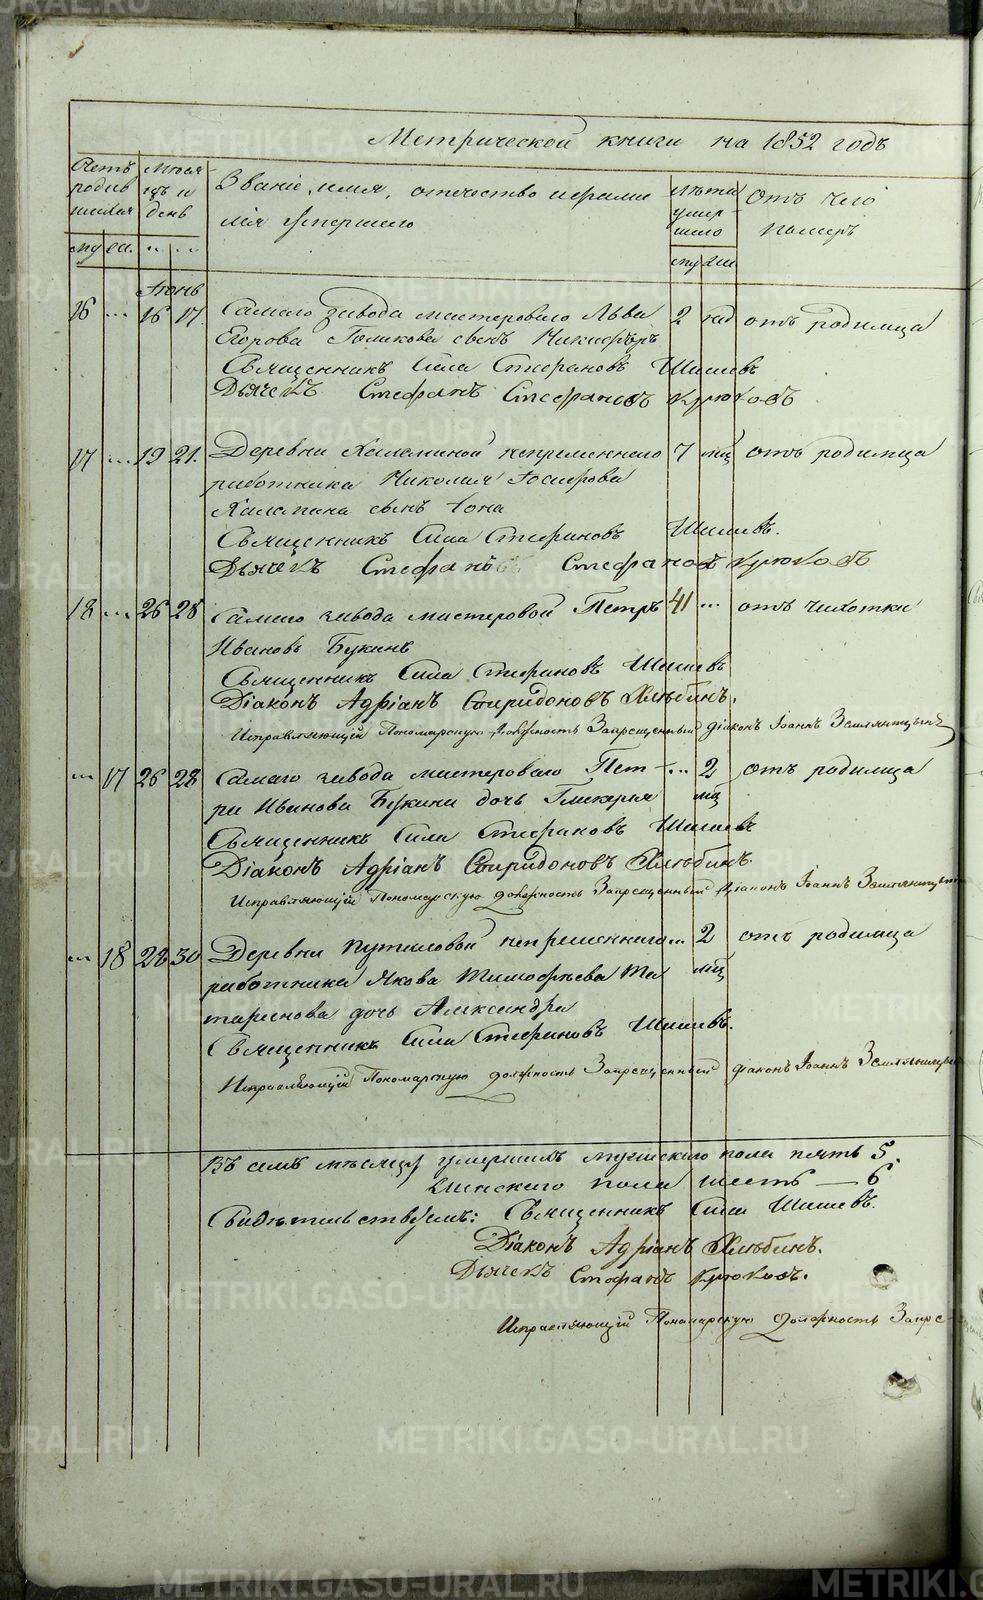 Метрической книги на 1852 годъ
Счетъ родившихся
Месяцъ и день
Званіе, имя, отчество и фамилія умершаго
Лѣта умершаго
Отъ чего померъ
му же.
му же
Іюнь
16 ... 16 17. Самаго завода мастероваго Льва 2 нед отъ родимца
Егорова Голикова сынъ Никифоръ
Священникъ Сила Стефановъ Шишевъ
Дьячекъ Стефанъ Стефановъ Крюковъ
17 ... 19 21. Деревни непременнаго 7 мц отъ родимца
работника Николая Іосифова
сынъ Іона
Священникъ Сила Стефановъ Шишевъ.
Дьячекъ Стефанъ Стефановъ Крюковъ
18 ... 26 28 Самаго завода мастеровой Петръ 41 ... отъ чихотки
Ивановъ Букинъ
Священникъ Сила Стефановъ Шишевъ
Діаконъ Адріанъ Спиридоновъ Хлѣбинъ.
Исправляющій Пономарскую должность Запрещенный діаконъ Іоаннъ Земляницынъ
... 17 26 28 Самаго завода мастероваго Пет- ... 2 отъ родимца
ра Иванова Букина дочь Гликерья мц
Священникъ Сила Стефановъ Шишевъ
Діаконъ Адріанъ Спиридоновъ Хлѣбинъ.
Исправляющій Пономарскую должность Запрещенный Діаконъ Іоаннъ Земляницынъ
... 18 28 30 Деревни Путиловой непременнаго ... 2 отъ родимца
работника Якова Тимофѣева Та мц
таренова дочь Александра
Священникъ Сила Стефановъ Шишевъ.
Исправляющій Пономарскую должность Запрещенный діаконъ Іоаннъ Земляницынъ
Въ семъ месяце умершихъ мужескаго пола пять 5.
Женскаго пола шесть — 6
Свидетельствуемъ: Священникъ Сила Шишевъ.
Діаконъ Адріанъ Хлѣбинъ.
Дьячекъ Стефанъ Крюковъ.
Исправляющій Пономарскую должность Запре
METRIKI.GASO-URAL.RU